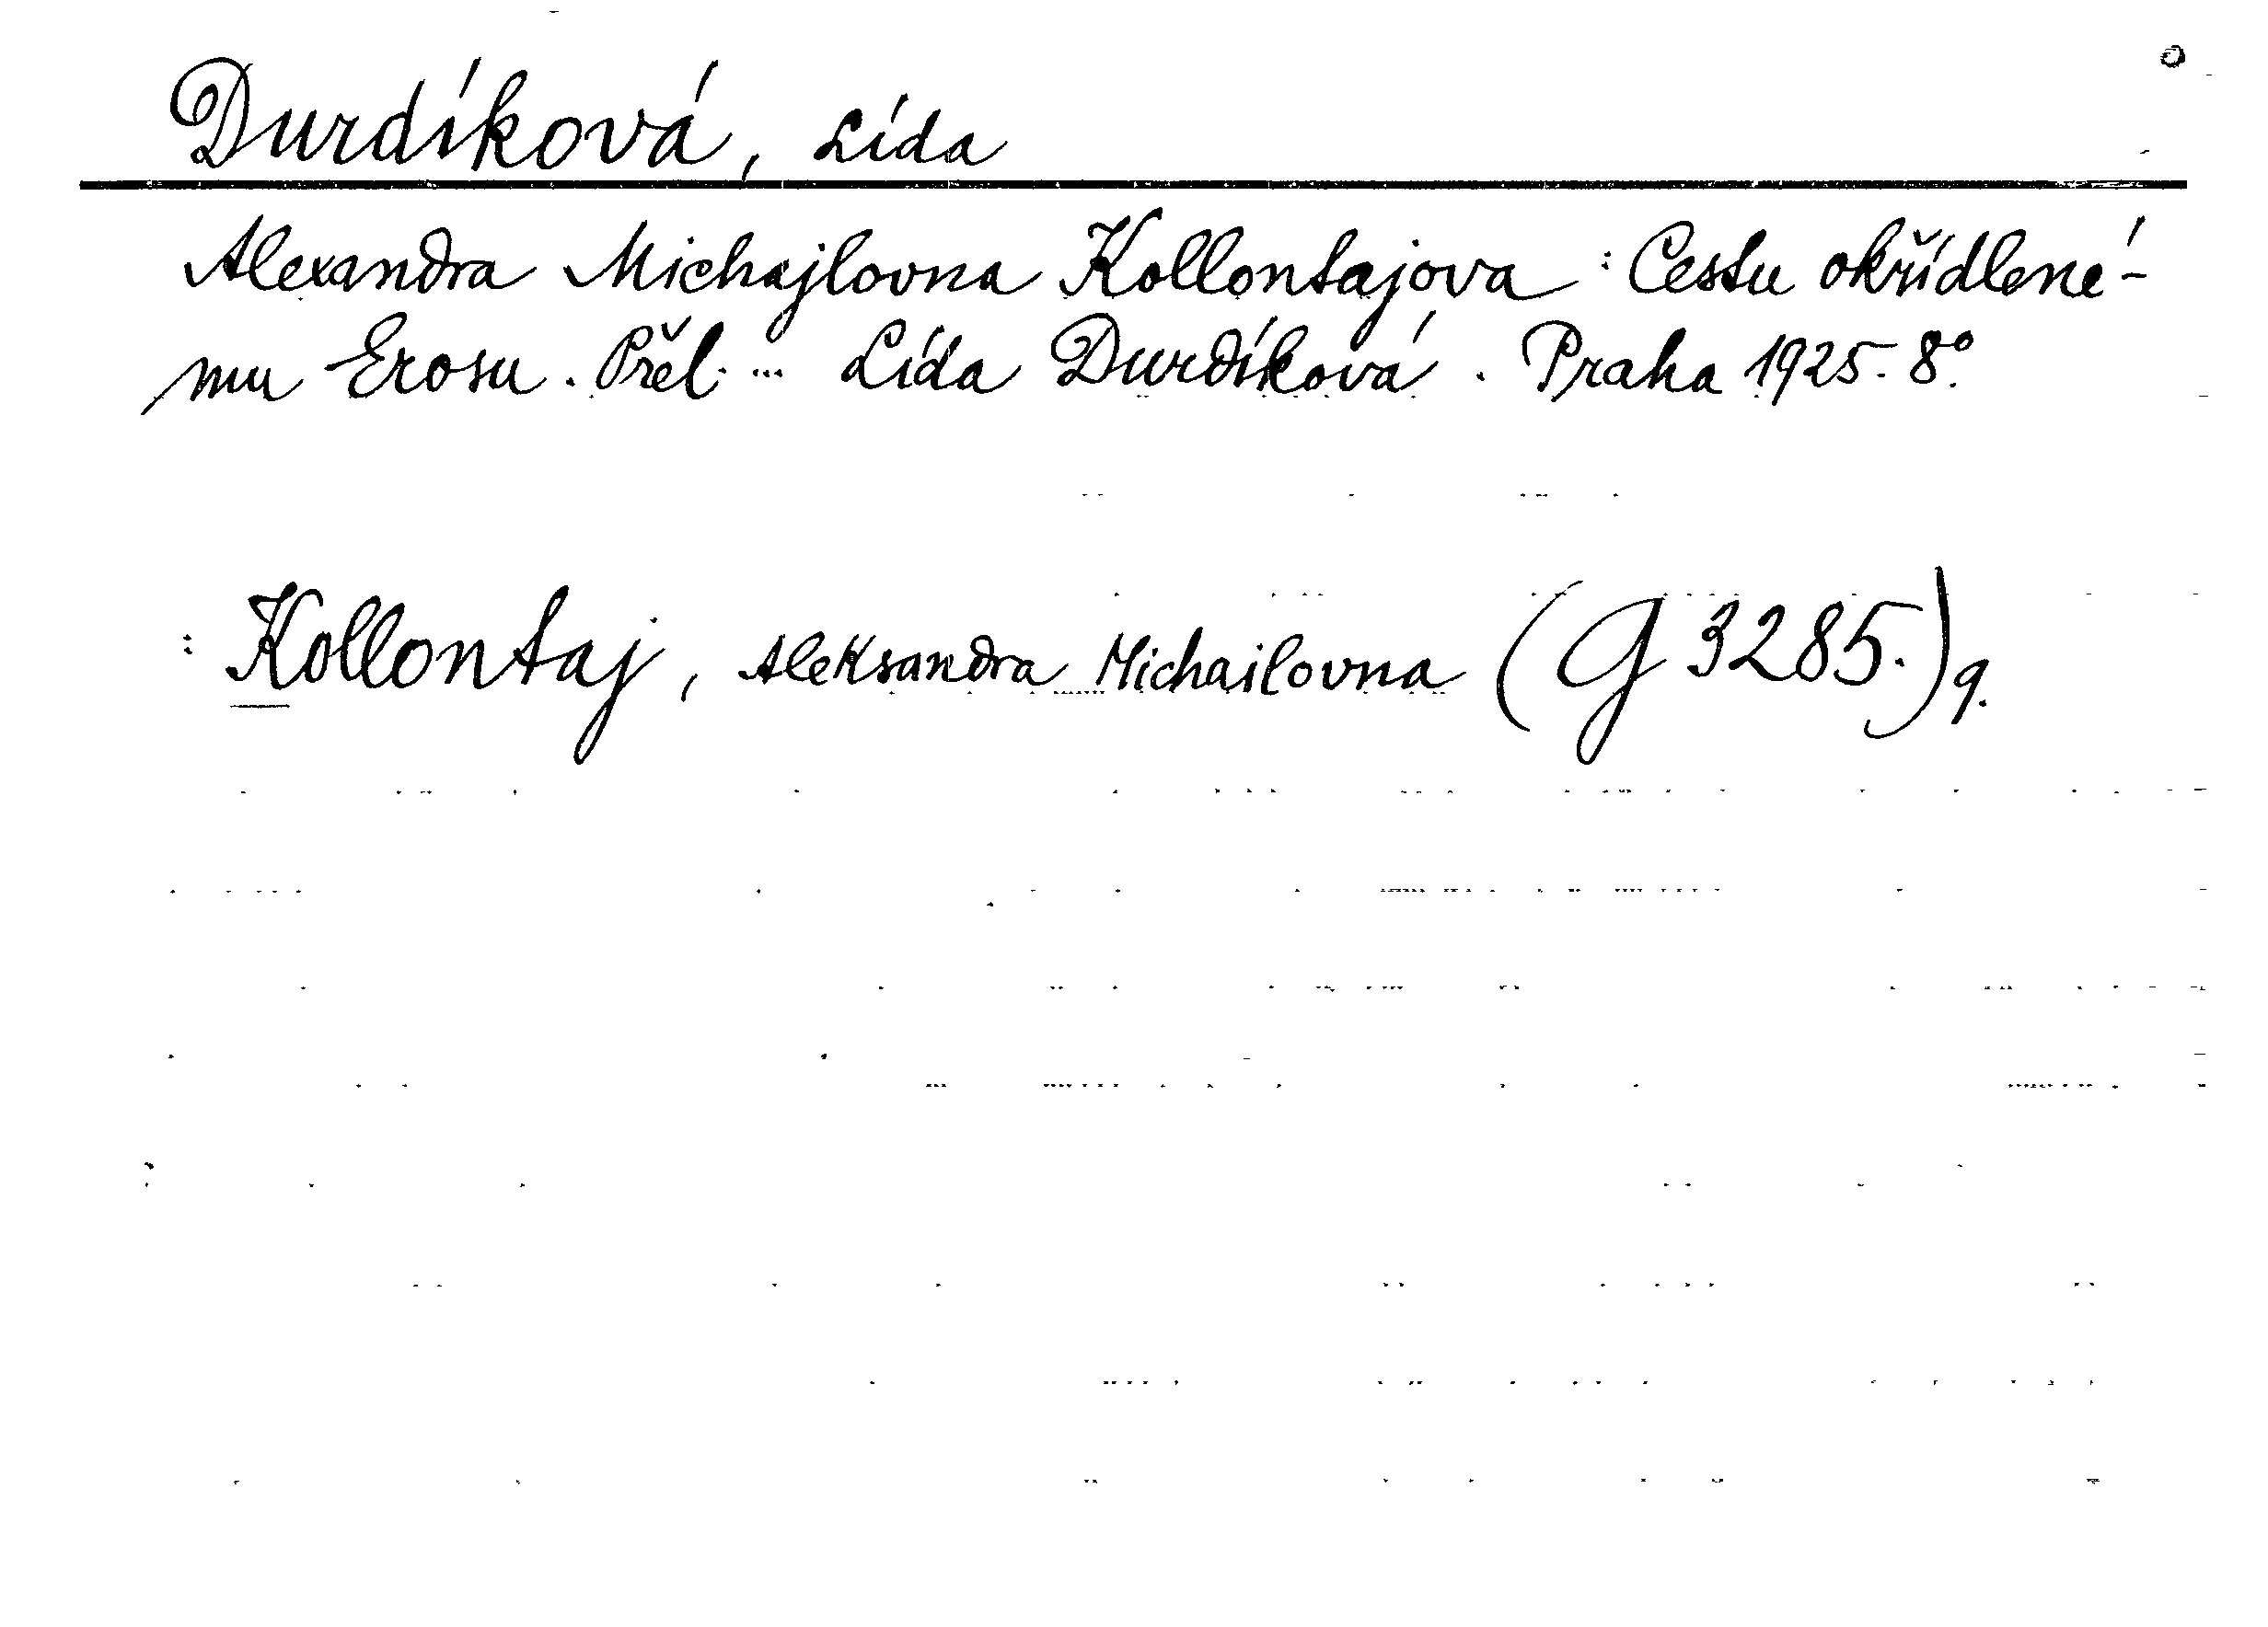 Durdíková, Lída
Alexandra Michajlovna Kollontajova : Cestu okřídlené-
mu Erosu. Přel. ... Lída Durdíková. Praha 1925. 8°.
: Kollontaj, Aleksandra Michailovna (G 3285.) q.